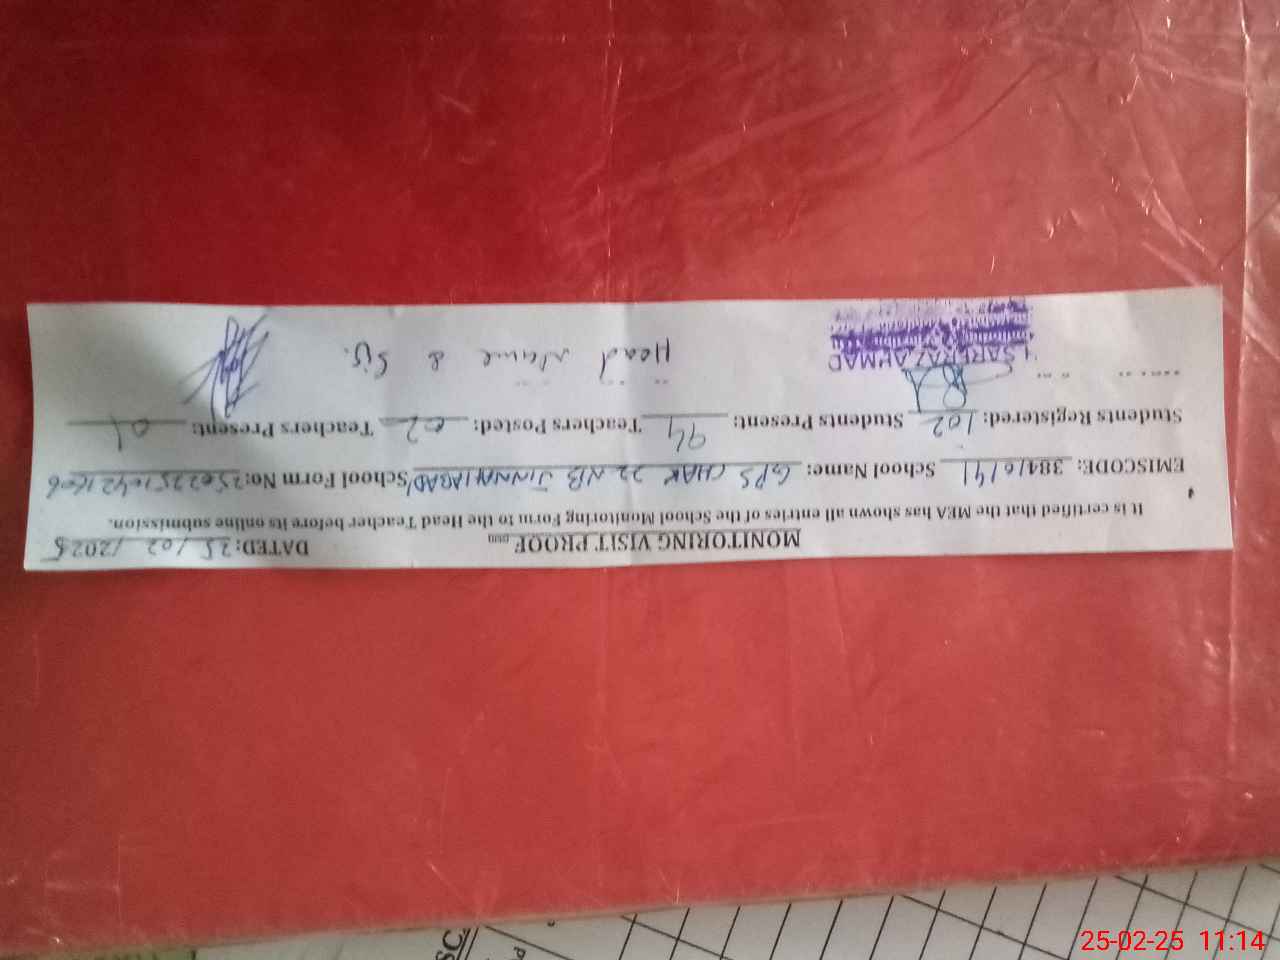 MONITORING VISIT PROOF DATED: 25/02/2025
It is certified that the MEA has shown all entries of the School Monitoring Form to the Head Teacher before its online submission.
EMISCODE: 38410141 School Name: GPS CHAK 22 NB JINNAHABAD School Form No:
Students Registered: 102 Students Present: 94 Teachers Posted: 02 Teachers Present: 01
Head Name & Sig.
SARFRAZ AHMAD
25-02-25 11:14